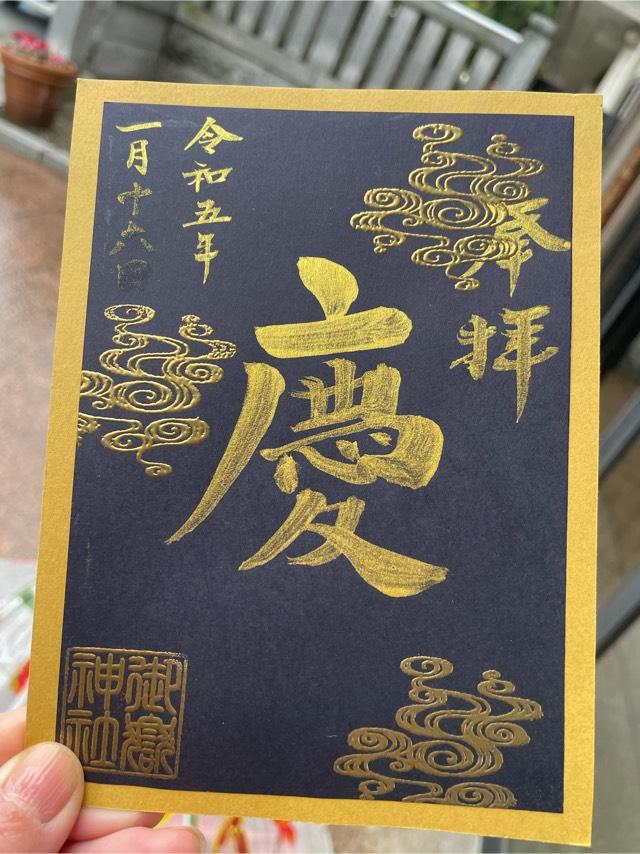 奉拝
慶
令和五年
一月十六日
御嶽
神社